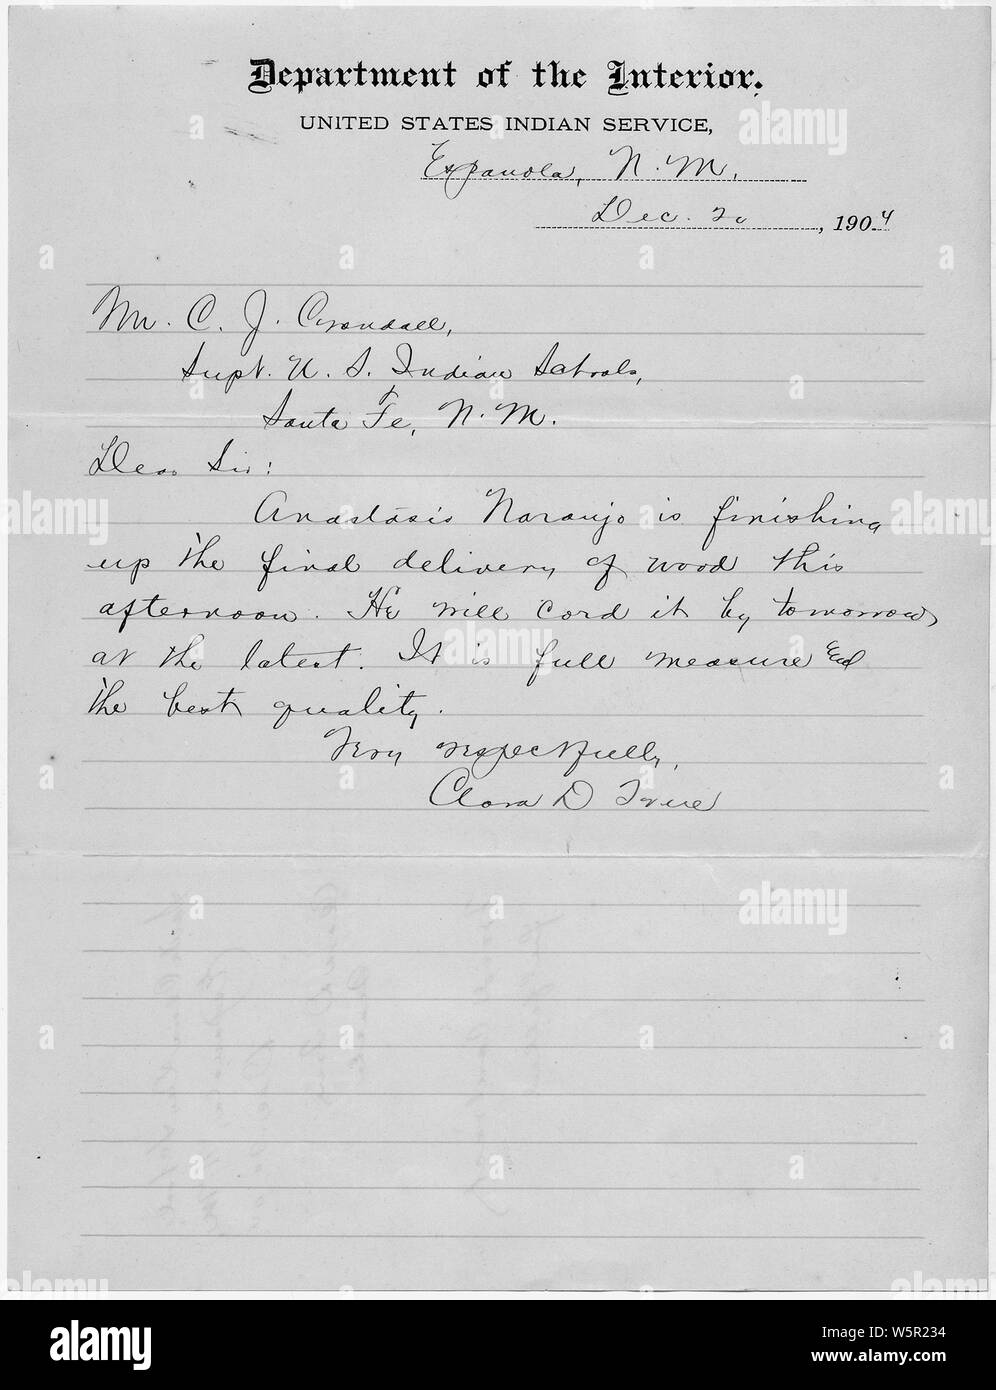 Department of the Interior.
UNITED STATES INDIAN SERVICE,
Espanola, N. M.,
Dec. 20, 1904
Mr. C. J. Crandall,
Supt. U. S. Indian Schools,
Santa Fe, N. M.
Dear Sir:
Anastasis Naranjo is finishing
up the final delivery of wood this
afternoon. He will cord it by tomorrow
at the latest. It is full measure and
the best quality.
Very respectfully,
Clara D True
alamy
Image ID: W5R234
www.alamy.com